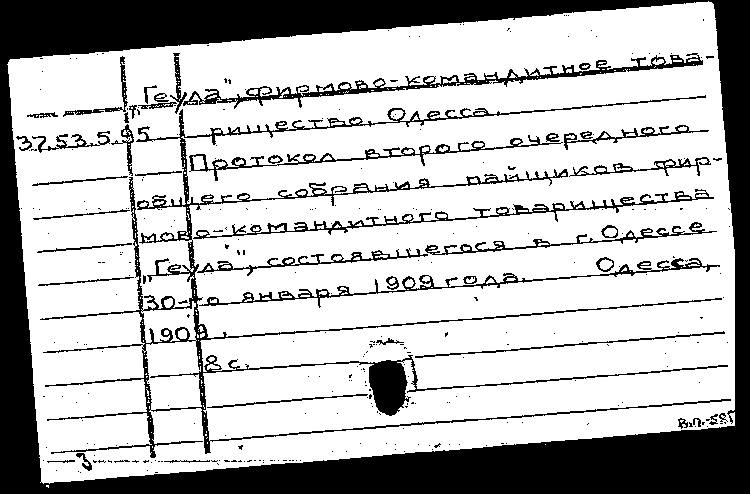 „Геула", фирмово-командитное това-
37.53.5.95 рищество, Одесса.
Протокол второго очередного
общего собрания пайщиков фир-
мово-командитного товарищества
„Геула", состоявшегося в г. Одессе
30-го января 1909 года. Одесса,
1909.
8 с.
З
В.п.-585